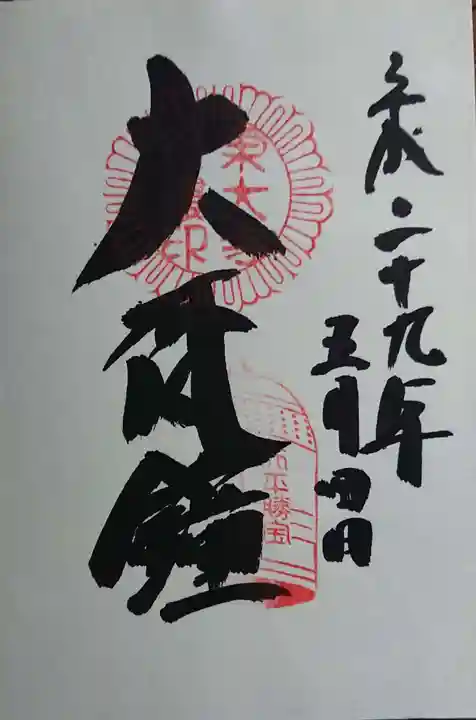 平成二十九年
五月四日
大梵鐘
東大寺
印
平勝宝